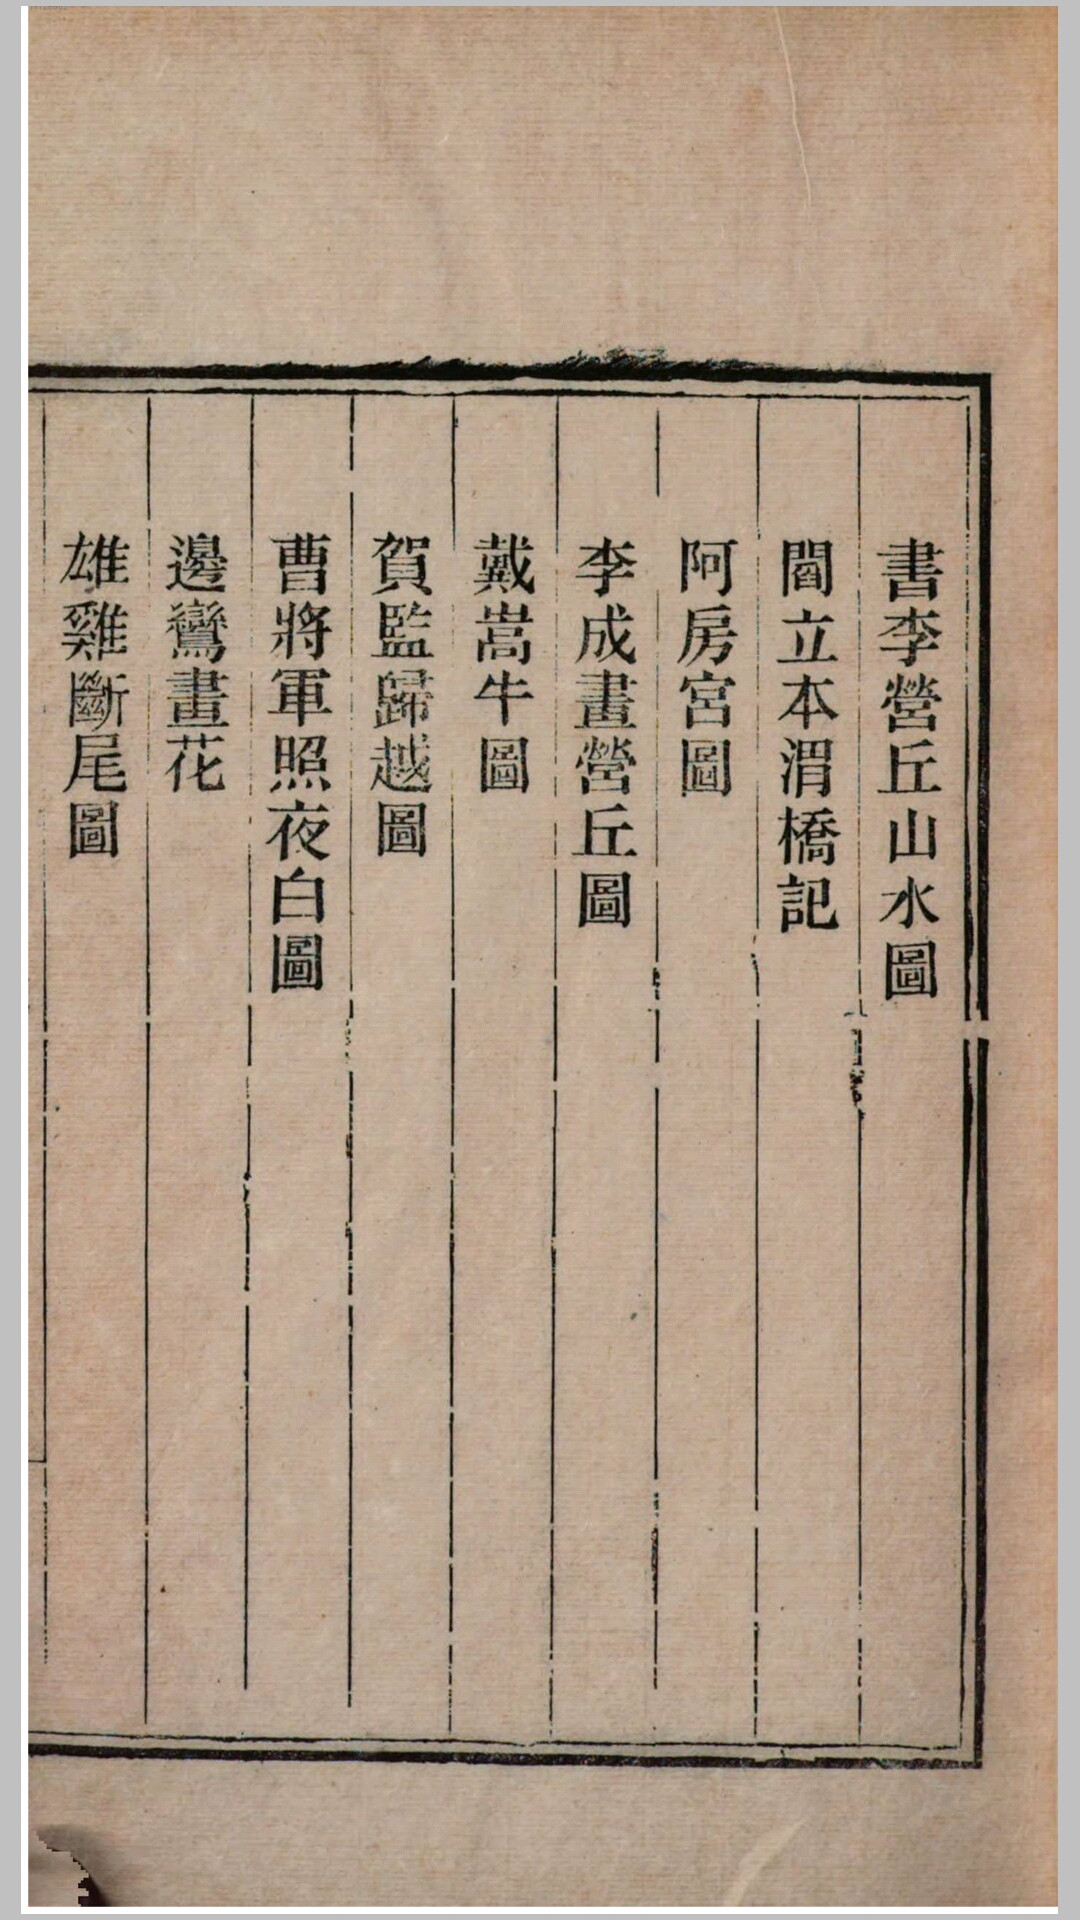 書李營丘山水圖
閻立本渭橋記
阿房宮圖
李成畫營丘圖
戴嵩牛圖
賀監歸越圖
曹將軍照夜白圖
邊鸞畫花
雄雞斷尾圖